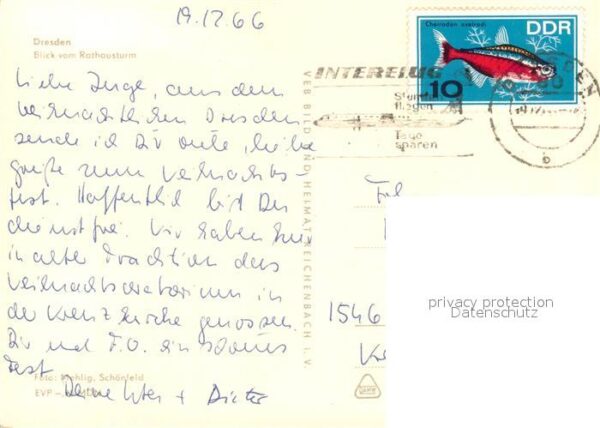 19.12.66
Dresden
Blick vom Rathausturm
Liebe Inge, aus dem
weihnachtlichen Dresden
sende ich Dir viele, liebe
Grüße zum Weihnachts-
fest. Hoffentlich bist Du
dienstfrei. Wir haben hier
in alter Tradition das
Weihnachtsoratorium in
der Kreuzkirche genossen.
Dir und F.O. ein schönes
Fest
Deine + Dieter
Foto: Mehlig, Schönfeld
EVP
VEB BILD UND HEIMAT REICHENBACH I. V.
DDR
10
INTERFLUG
Stunden
fliegen
Tage
sparen
1546
privacy protection
Datenschutz